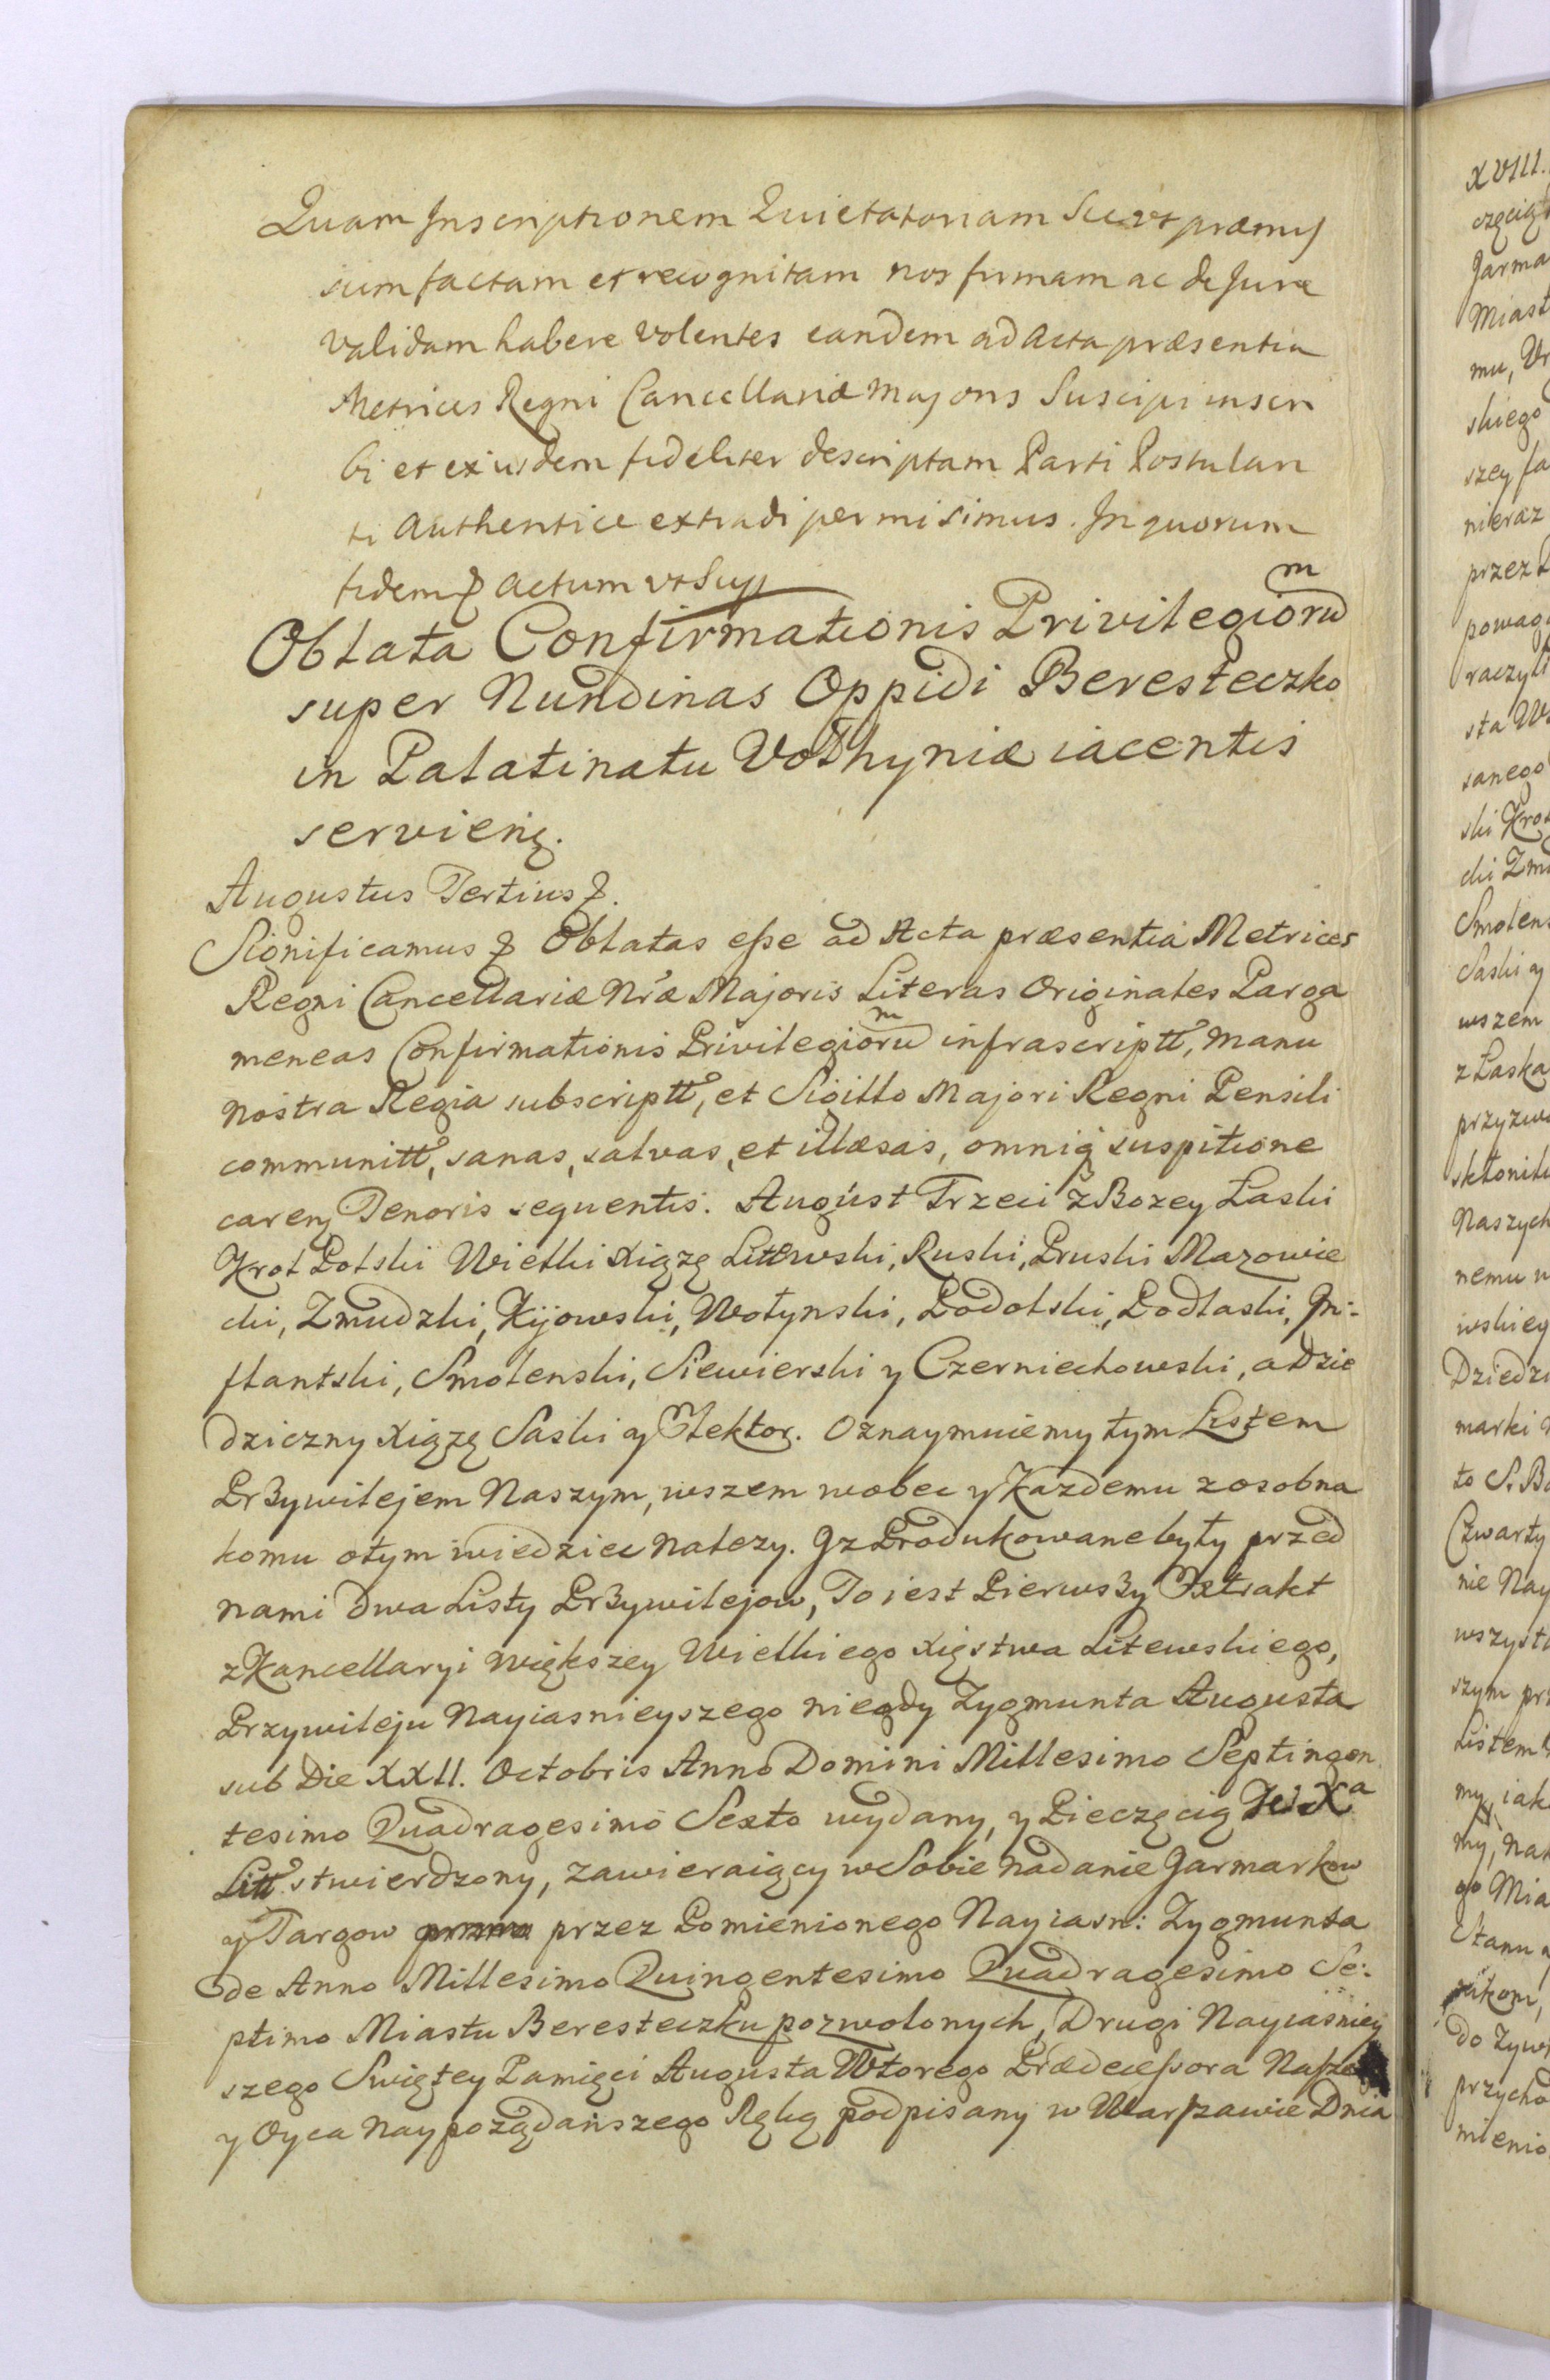 Quam Inscriptionem Quietatoriam Sicut præmis
sum factam et recognitam nos firmam ac de Jure
validam habere volentes eandem ad Acta præsentia
Metrices Regni Cancellariæ Majoris Suscipi inscri
bi et ex iisdem fideliter descriptam Parti Postulan
ti Authentice extradi permisimus. In quorum
fidem Actum ut Sup
Oblata Confirmationis Privilegiorum
super Nundinas Oppidi Beresteczko
in Palatinatu Volhyniæ iacentis
servien.
Augustus Tertius
Significamus Oblatas esse ad Acta præsentia Metrices
Regni Cancellariæ Nræ Majoris Literas Originales Parga
meneas Confirmationis Privilegiorum infrascriptt, Manu
nostra Regia subscriptt, et Sigillo Majori Regni Pensili
communitt, sanas, salvas, et illæsas, omniq suspitione
caren Tenoris sequentis. August Trzeci z Bozey Łaski
Krol Polski Wielki Xiąze Littewski, Ruski, Pruski Mazowie
cki, Zmudzki, Kijowski, Wołynski, Podolski, Podlaski, In:
flantski, Smolenski, Siewierski y Czerniechowski, a dzie
dziczny Xiązę Saski y Elektor. Oznaymuiemy tym Listem
Przywilejem Naszym, wszem wobec y Kazdemu zosobna
komu o tym wiedziec nalezy. Iz Produkowane były przed
nami dwa Listy Przywilejow, To iest Pierwszy Extrakt
z Kancellaryi większey Wielkiego Xięstwa Litewskiego,
Przywileju Nayiasnieyszego niegdy Zygmunta Augusta
sub Die XXII. Octobris Anno Domini Millesimo Septingen
tesimo Quadragesimo Sexto wydany, y Pieczęcią W. Xa
Litt. stwierdzony, zawieraiący w Sobie nadanie Jarmarkow
y Targow przez Pomienionego Nayiasn: Zygmunta
de Anno Millesimo Quingentesimo Quadragesimo Se:
ptimo Miastu Beresteczku pozwolonych, Drugi Nayiasniey
szego Swiętey Pamięci Augusta Wtorego Prædecessora Naszego
y Oyca Naypoządanszego Ręką podpisany w Warszawie Dnia
XVIII.